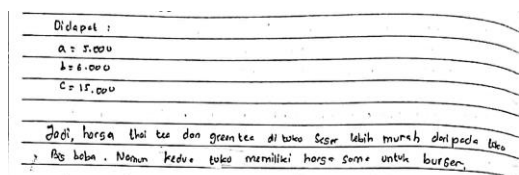 Didapat :
a = 5.000
b = 6.000
C = 15.000
Jadi, harga thai tea dan green tea di toko Seger lebih murah daripada toko
Big boba. Namun kedua toko memiliki harga sama untuk burger.